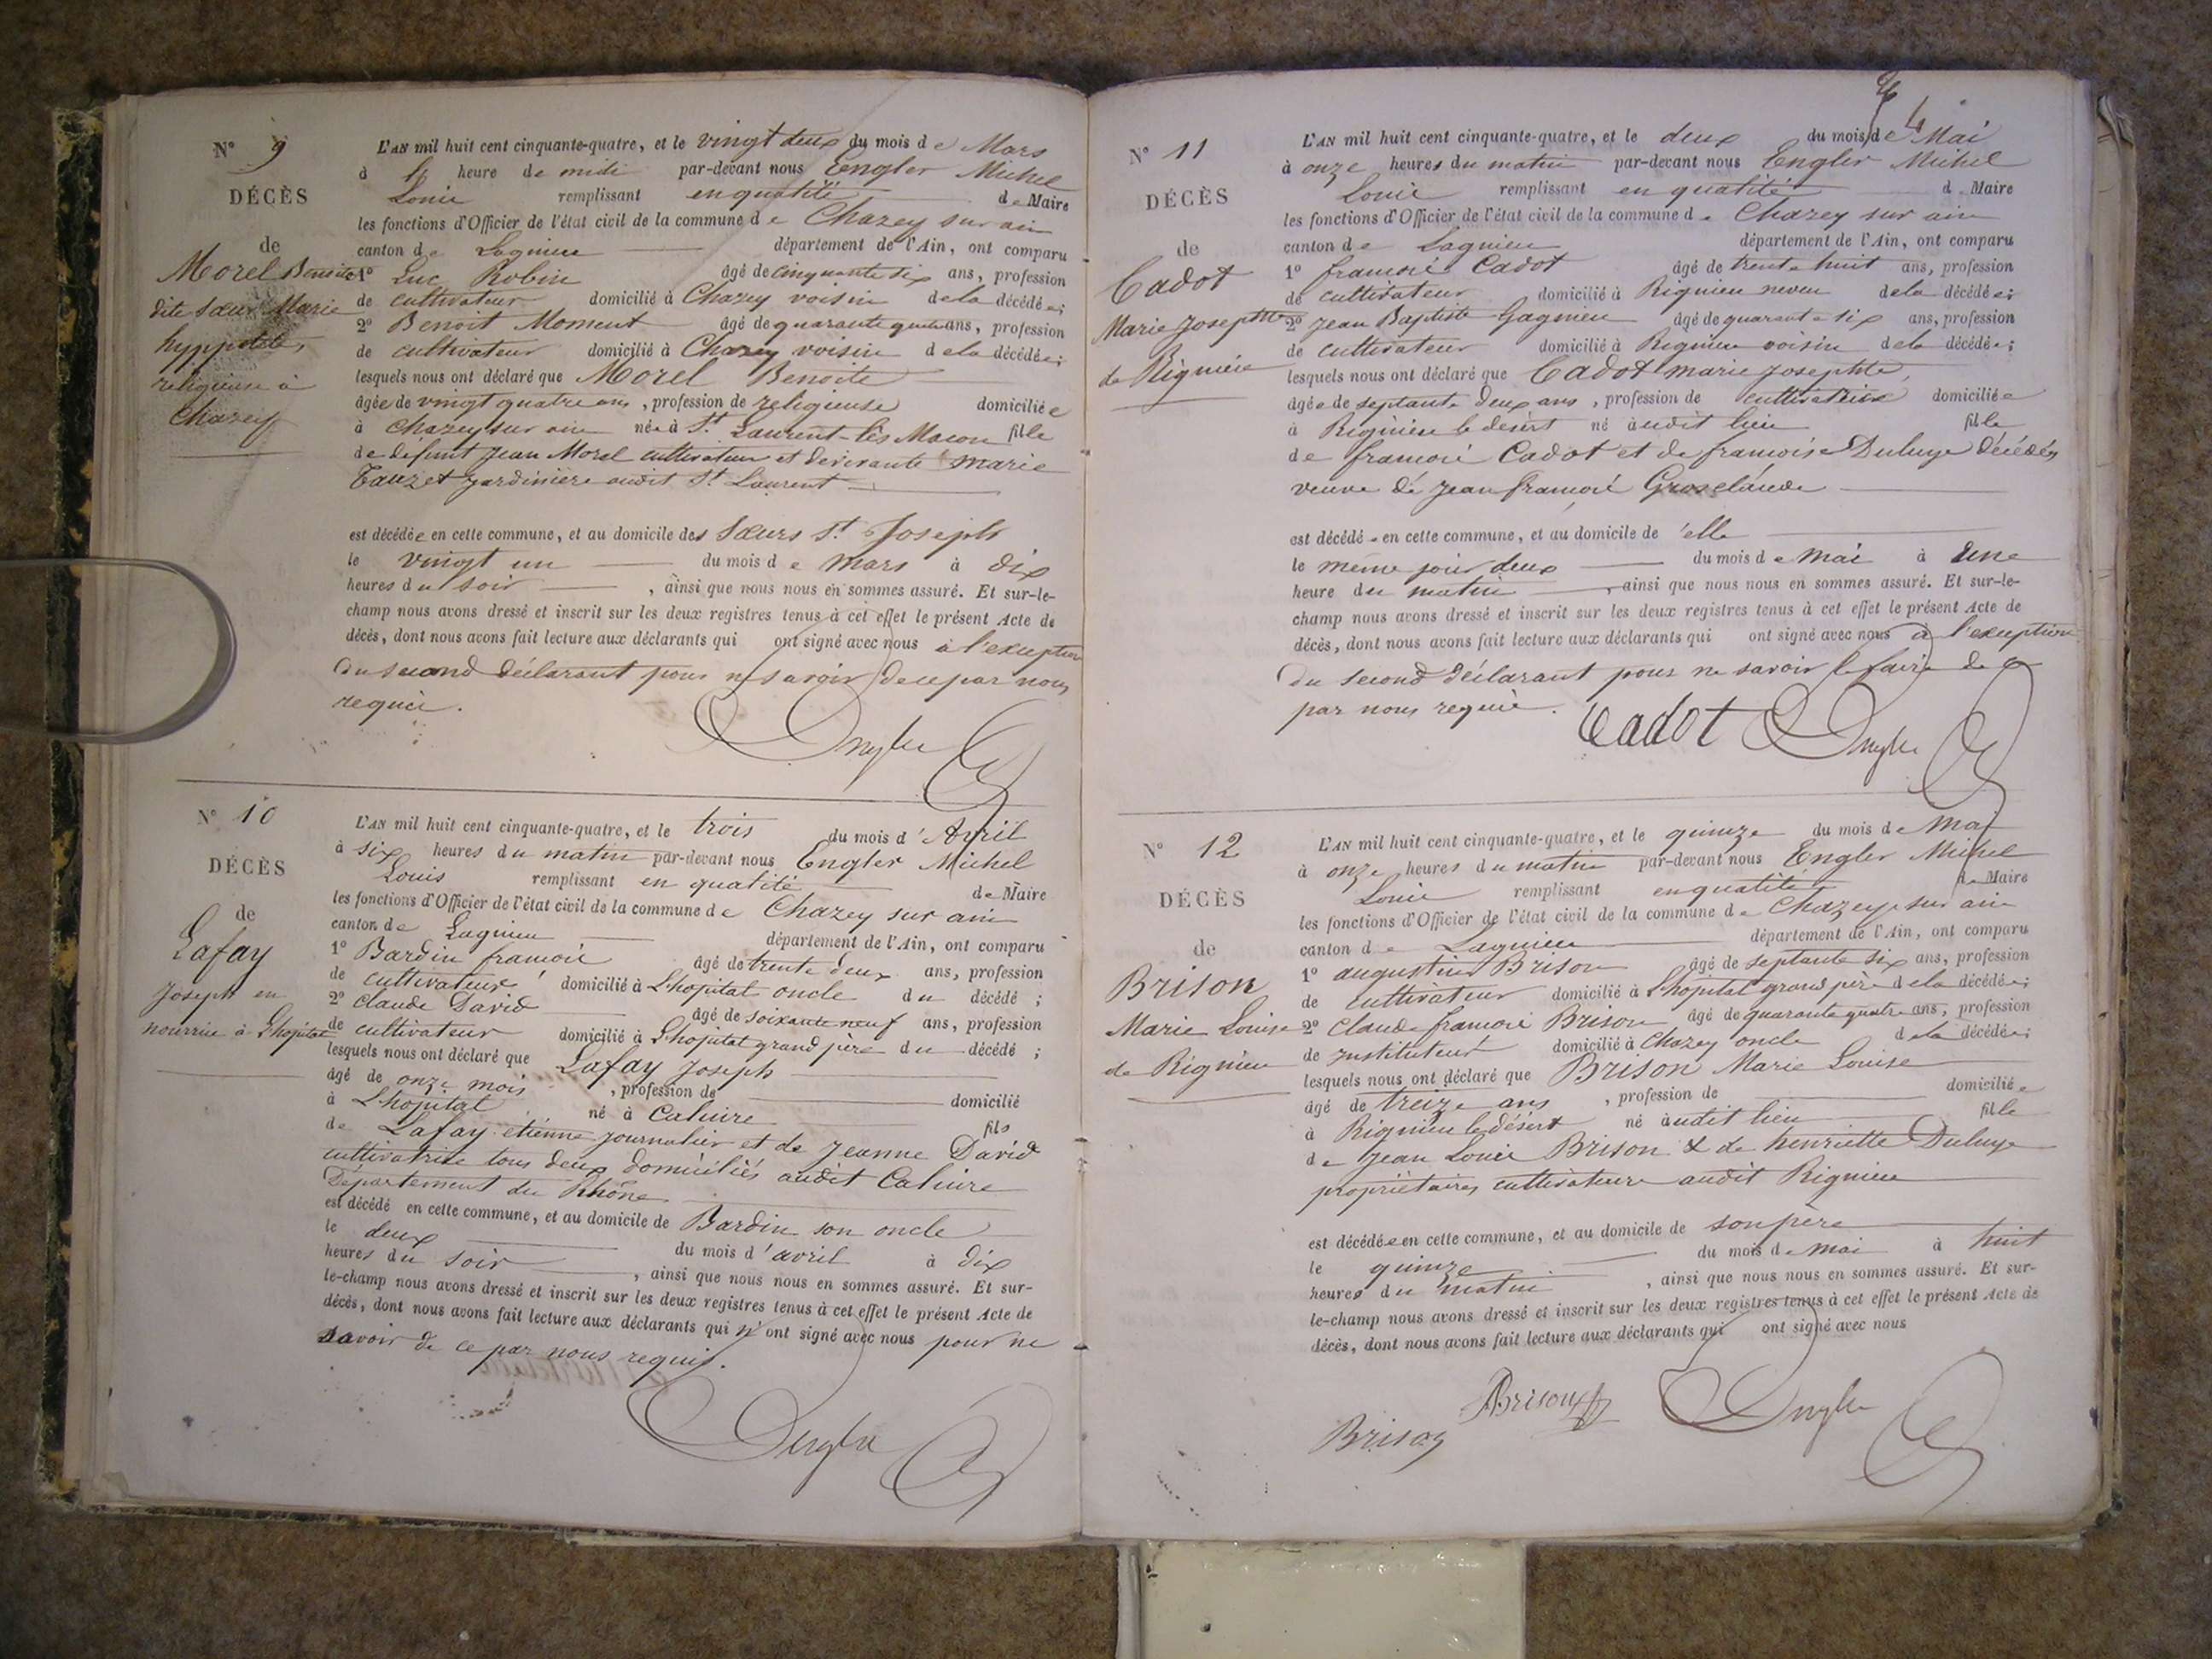 N° 9
DÉCÈS
de
Morel Benoite
dite sœur Marie
hyppolite,
religieuse à
Chazey
L'AN mil huit cent cinquante-quatre, et le vingt deux du mois de Mars
à heure de midi par-devant nous Engler Michel
Louis remplissant en qualité de Maire
les fonctions d'Officier de l'état civil de la commune de Chazey sur ain
canton de Lagnieu département de l'Ain, ont comparu
1° Luc Robin âgé de cinquante six ans, profession
de cultivateur domicilié à Chazey voisin de la décédée;
2° Benoit Moment âgé de quarante ans, profession
de cultivateur domicilié à Chazey voisin de la décédée;
lesquels nous ont déclaré que Morel Benoite
âgée de vingt quatre ans, profession de religieuse domiciliée
à Chazey sur ain née à St Laurent-lès Macon fille
de defunt Jean Morel cultivateur et de vivante Marie
Tauzet jardinière audit St Laurent
est décédée en cette commune, et au domicile des Sœurs St Joseph
le vingt un du mois de mars à dix
heures du soir, ainsi que nous nous en sommes assuré. Et sur-le-
champ nous avons dressé et inscrit sur les deux registres tenus à cet effet le présent Acte de
décès, dont nous avons fait lecture aux déclarants qui ont signé avec nous à l'exception
du second déclarant pour ne savoir de ce par nous
requis.
Engler
N° 10
DÉCÈS
de
Lafay
Joseph en
nourrice à L'hopital
L'AN mil huit cent cinquante-quatre, et le trois du mois d'Avril
à six heures du matin par-devant nous Engler Michel
Louis remplissant en qualité de Maire
les fonctions d'Officier de l'état civil de la commune de Chazey sur ain
canton de Lagnieu département de l'Ain, ont comparu
1° Bardin françois âgé de trente deux ans, profession
de cultivateur domicilié à L'hopital oncle du décédé;
2° Claude David âgé de soixante neuf ans, profession
de cultivateur domicilié à L'hopital grand père du décédé;
lesquels nous ont déclaré que Lafay Joseph
âgé de onze mois, profession de domicilié
à L'hopital né à Caluire fils
de Lafay etienne journalier et de Jeanne David
cultivatrice tous deux domiciliés audit Caluire
Département du Rhône
est décédé en cette commune, et au domicile de Bardin son oncle
le deux du mois d'avril à dix
heures du soir, ainsi que nous nous en sommes assuré. Et sur-
le-champ nous avons dressé et inscrit sur les deux registres tenus à cet effet le présent Acte de
décès, dont nous avons fait lecture aux déclarants qui n'ont signé avec nous pour ne
savoir de ce par nous requis.
Engler
4
N° 11
DÉCÈS
de
Cadot
Marie Josephte
de Rignieu
L'AN mil huit cent cinquante-quatre, et le deux du mois de Mai
à onze heures du matin par-devant nous Engler Michel
Louis remplissant en qualité de Maire
les fonctions d'Officier de l'état civil de la commune de Chazey sur ain
canton de Lagnieu département de l'Ain, ont comparu
1° françois Cadot âgé de trente huit ans, profession
de cultivateur domicilié à Rignieu neveu de la décédée;
2° Jean Baptiste Gagneu âgé de quarante six ans, profession
de cultivateur domicilié à Rignieu voisin de la décédée;
lesquels nous ont déclaré que Cadot marie Josephte,
âgée de septante deux ans, profession de cultivatrice domiciliée
à Rignieu le désert né audit lieu fille
de françois Cadot et de françoise Duluye décédés
veuve de Jean françois Grosclaude
est décédée en cette commune, et au domicile de elle
le même jour deux du mois de mai à une
heure du matin, ainsi que nous nous en sommes assuré. Et sur-le-
champ nous avons dressé et inscrit sur les deux registres tenus à cet effet le présent Acte de
décès, dont nous avons fait lecture aux déclarants qui ont signé avec nous à l'exception
du second déclarant pour ne savoir le faire de ce
par nous requis.
Cadot Engler
N° 12
DÉCÈS
de
Brison
Marie Louise
de Rignieu
L'AN mil huit cent cinquante-quatre, et le quinze du mois de Mai
à onze heures du matin par-devant nous Engler Michel
Louis remplissant en qualité de Maire
les fonctions d'Officier de l'état civil de la commune de Chazey sur ain
canton de Lagnieu département de l'Ain, ont comparu
1° augustin Brison âgé de septante six ans, profession
de cultivateur domicilié à L'hopital grand père de la décédée;
2° Claude françois Brison âgé de quarante quatre ans, profession
de instituteur domicilié à Chazey oncle de la décédée;
lesquels nous ont déclaré que Brison Marie Louise
âgé de treize ans, profession de domiciliée
à Rignieu le désert né audit lieu fille
de Jean Louis Brison & de henriette Duluye
propriétaires cultivateurs audit Rignieu
est décédée en cette commune, et au domicile de son père
le quinze du mois de mai à huit
heures du matin, ainsi que nous nous en sommes assuré. Et sur-
le-champ nous avons dressé et inscrit sur les deux registres tenus à cet effet le présent Acte de
décès, dont nous avons fait lecture aux déclarants qui ont signé avec nous
Brison Engler
Brison